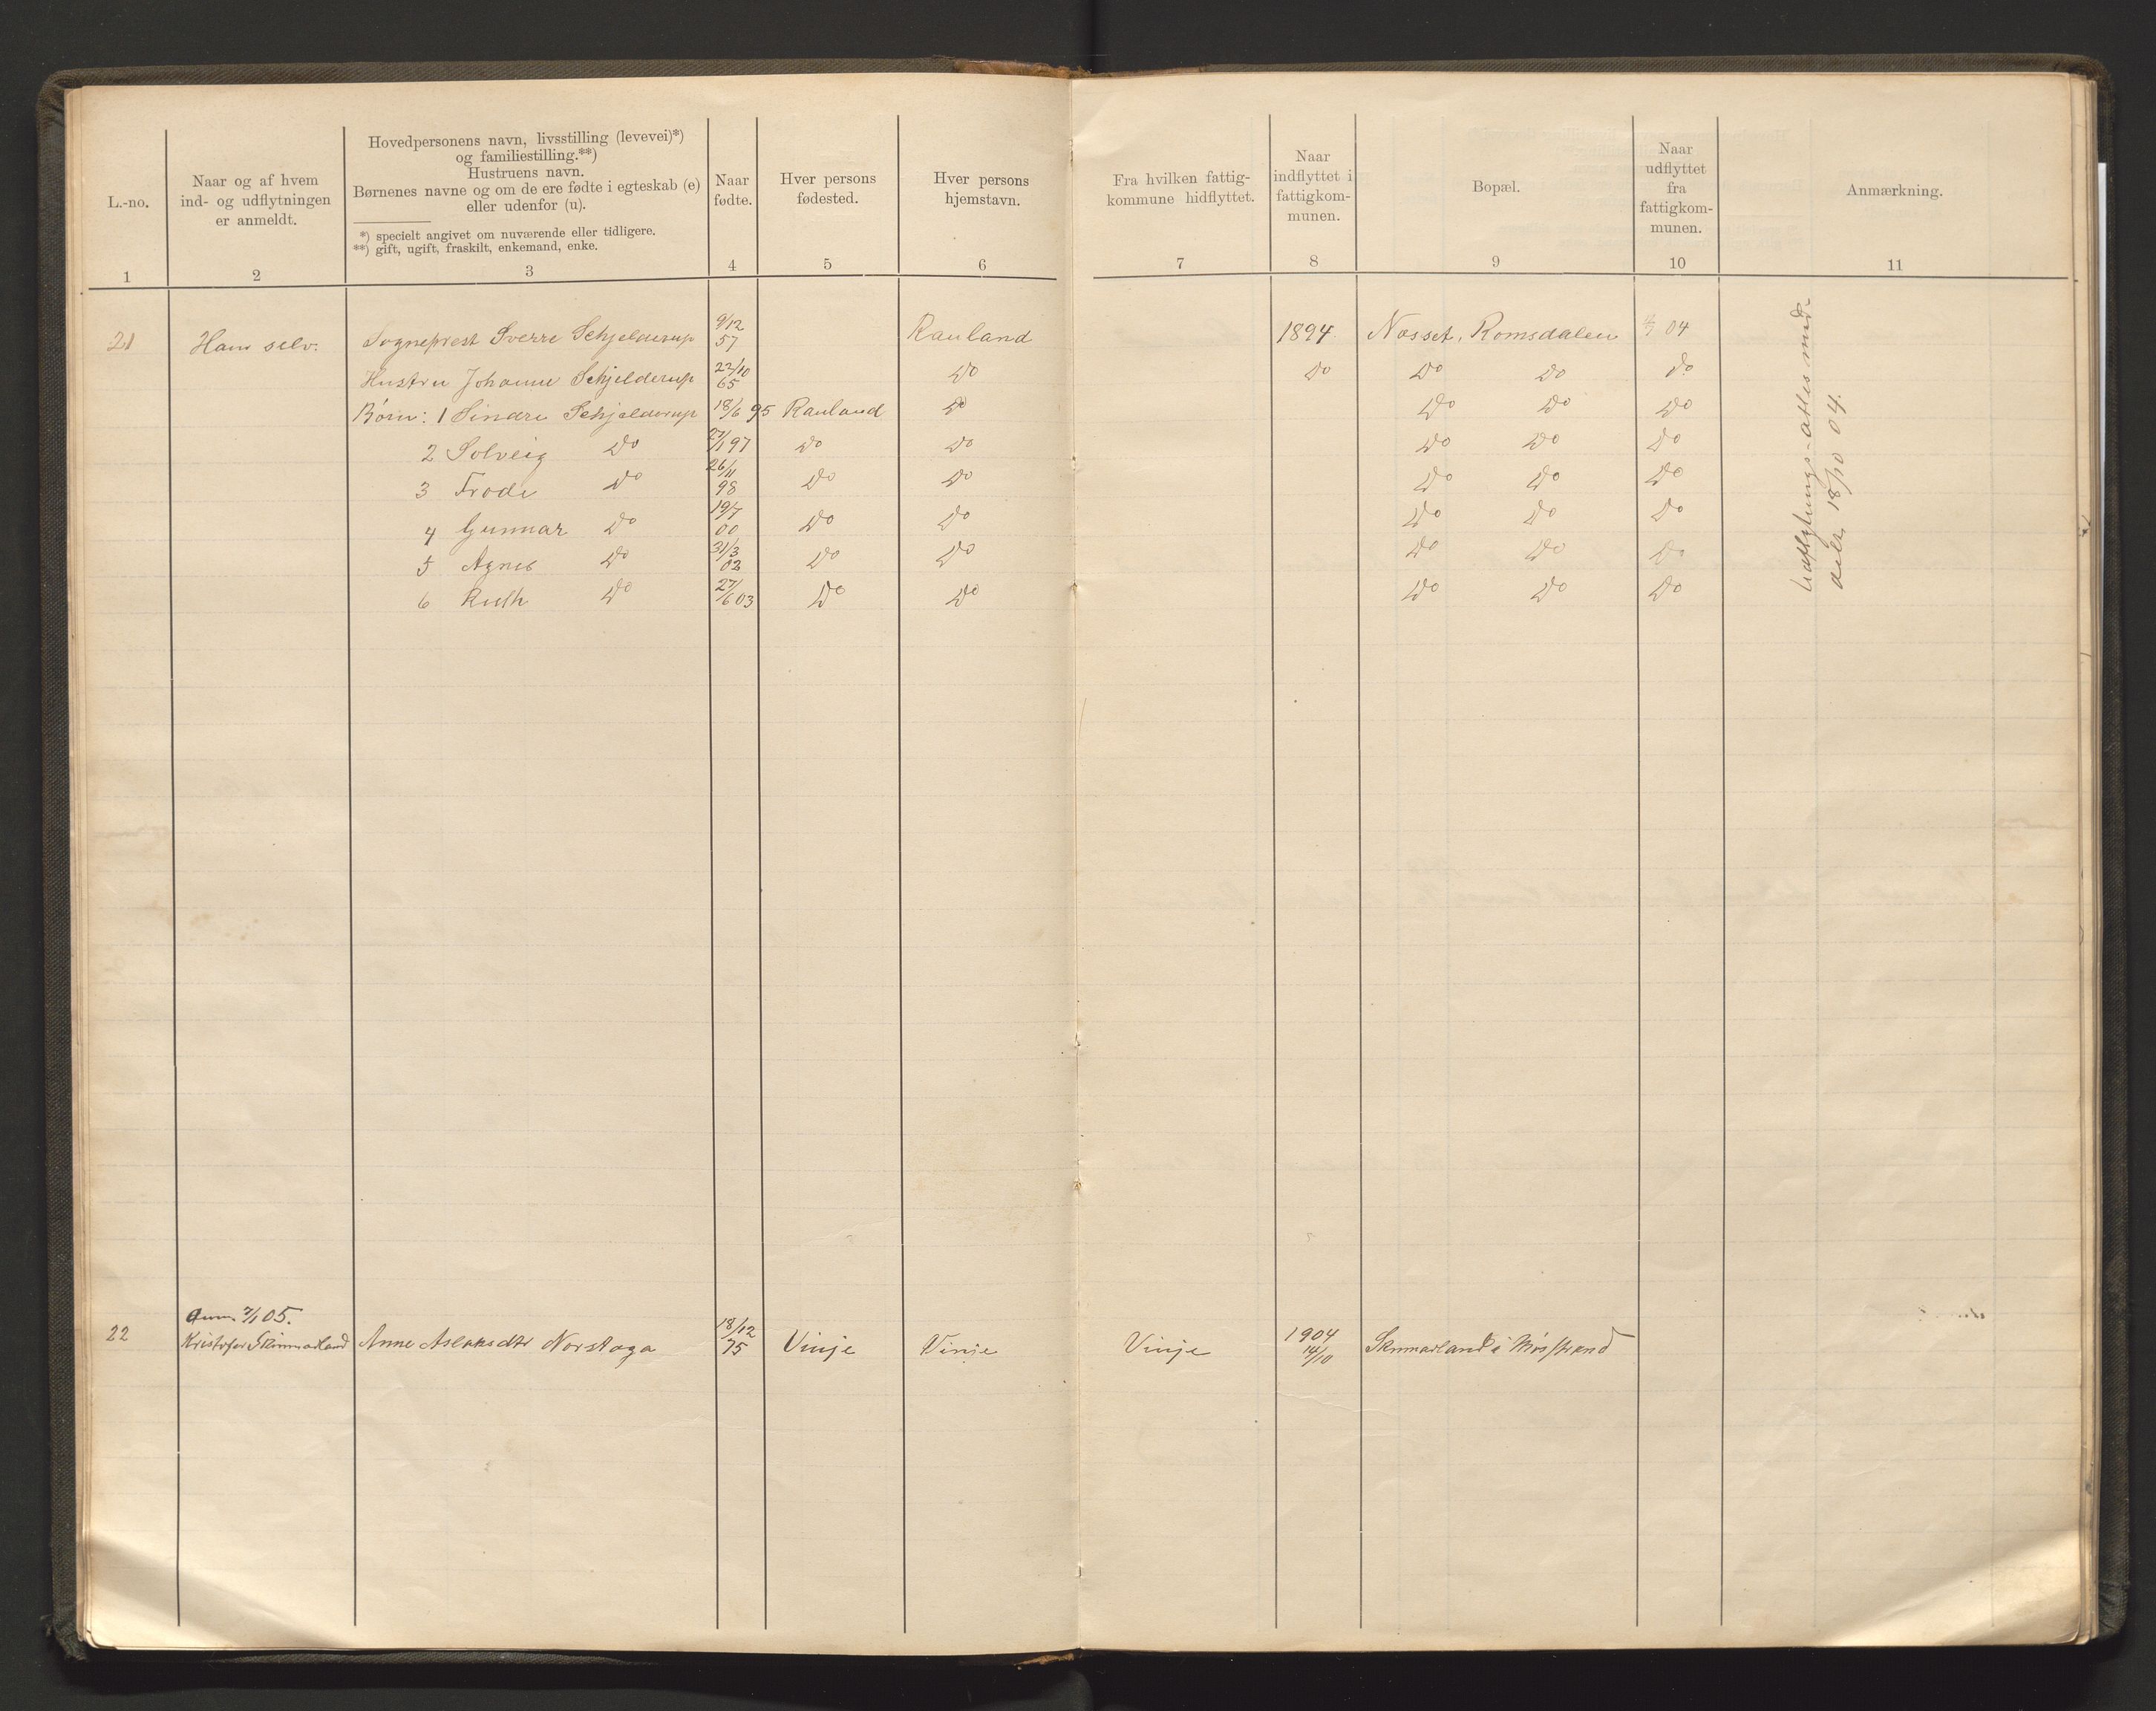 L.-no.
Naar og af hvem
ind- og udflytningen
er anmeldt.
Hovedpersonens navn, livsstilling (levevei)*)
og familiestilling.**)
Hustruens navn.
Børnenes navne og om de ere fødte i egteskab (e)
eller udenfor (u).
*) specielt angivet om nuværende eller tidligere.
**) gift, ugift, fraskilt, enkemand, enke.
Naar
fødte.
Hver persons
fødested.
Hver persons
hjemstavn.
Fra hvilken fattig-
kommune hidflyttet.
Naar
indflyttet i
fattigkom-
munen.
Bopæl.
Naar
udflyttet
fra
fattigkom-
munen.
Anmærkning.
1 2 3 4 5 6 7 8 9 10 11
21 Ham selv. Sogneprest Sverre Schjelderup 9/12 57 Rauland 1894 Næsset, Romsdalen 04
Hustru Johanne Schjelderup 22/10 65 Do Do Do Do Do
Børn: 1 Sindre Schjelderup 18/6 95 Rauland Do Do Do Do
2 Solveig Do 27/1 97 Do Do Do Do Do
3 Frode Do 26/11 98 Do Do Do Do Do
4 Gunnar Do 19/7 00 Do Do Do Do Do
5 Agnes Do 31/3 02 Do Do Do Do Do
6 Ruth Do 27/6 03 Do Do Do Do Do
Udflytnings-attes med-
delt 18/10 04.
Anm. 7/1 05.
22 Kristofer Skinnarland Anne Aslaksdtr Norstoga 18/12 75 Vinje Vinje Vinje 1904 14/10 Skinnarland i Møsstrand